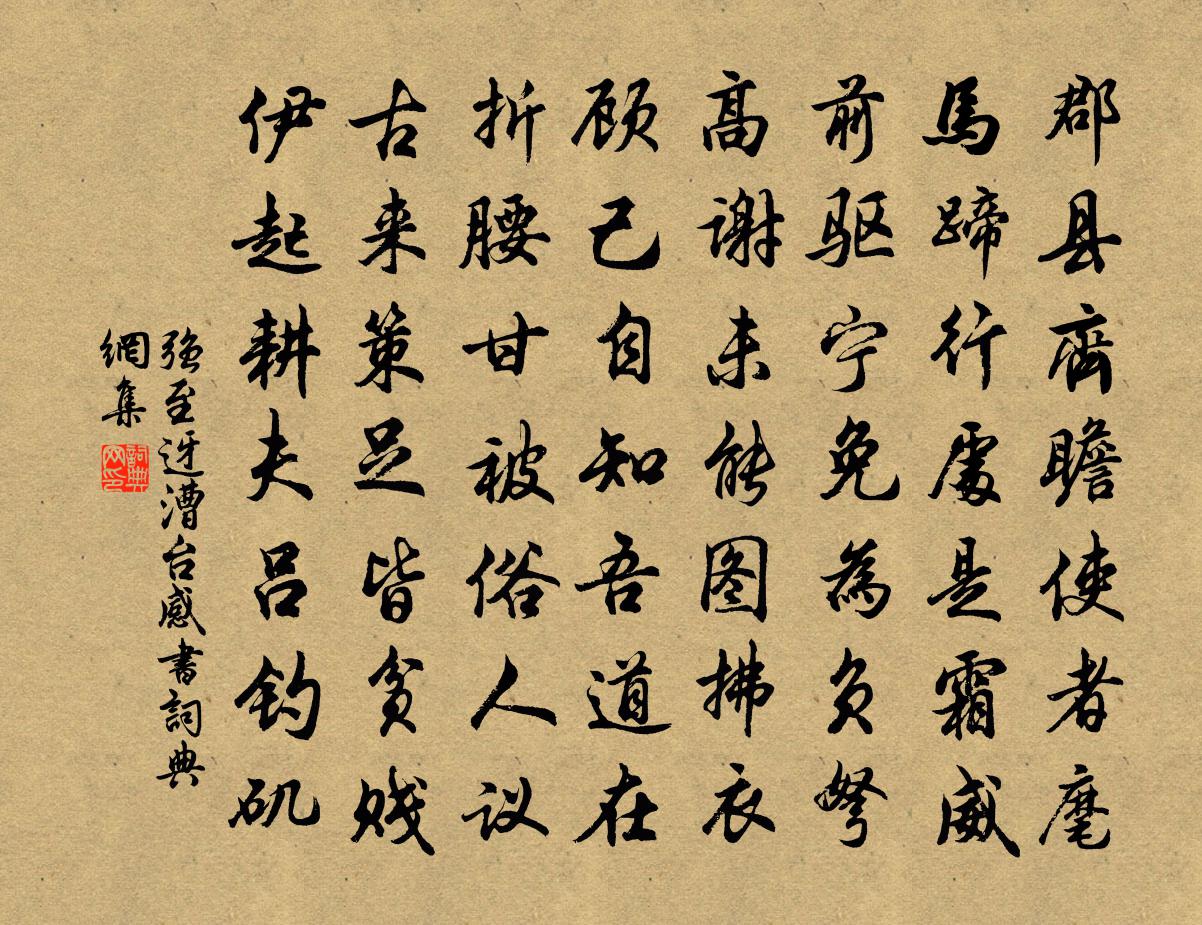 郡县齊瞻使者麾
馬蹄行處是霜威
前驱宁免為负弩
高谢未能图拂衣
顾己自知吾道在
折腰甘被俗人议
古来策足皆贫贱
伊起耕夫吕钓矶
强至迓漕台感書詞典
網集
詞典
网印